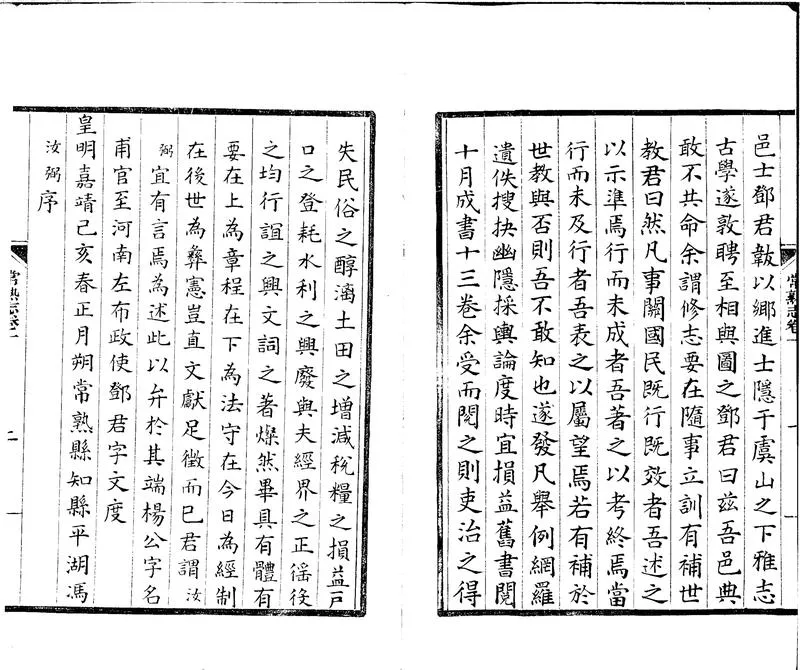 邑士鄧君韍以鄉進士隱于虞山之下雅志
古學遂敦聘至相與圖之鄧君曰兹吾邑典
敢不共命余謂修志要在隨事立訓有補世
教君曰然凡事關國民既行既效者吾述之
以示準焉行而未成者吾著之以考終焉當
行而未及行者吾表之以屬望焉若有補於
世教與否則吾不敢知也遂發凡舉例網羅
遺佚搜抉幽隱採輿論度時宜損益舊書閱
十月成書十三卷余受而閱之則吏治之得
常熟志卷一
失民俗之醇漓土田之增減稅糧之損益戶
口之登耗水利之興廢與夫經界之正徭役
之均行誼之興文詞之著燦然畢具有體有
要在上為章程在下為法守在今日為經制
在後世為彝憲豈直文獻足徵而已君謂汝
弼宜有言焉為述此以弁於其端楊公字名
甫官至河南左布政使鄧君字文度
皇明嘉靖己亥春正月朔常熟縣知縣平湖馮
汝弼序
常熟志卷一